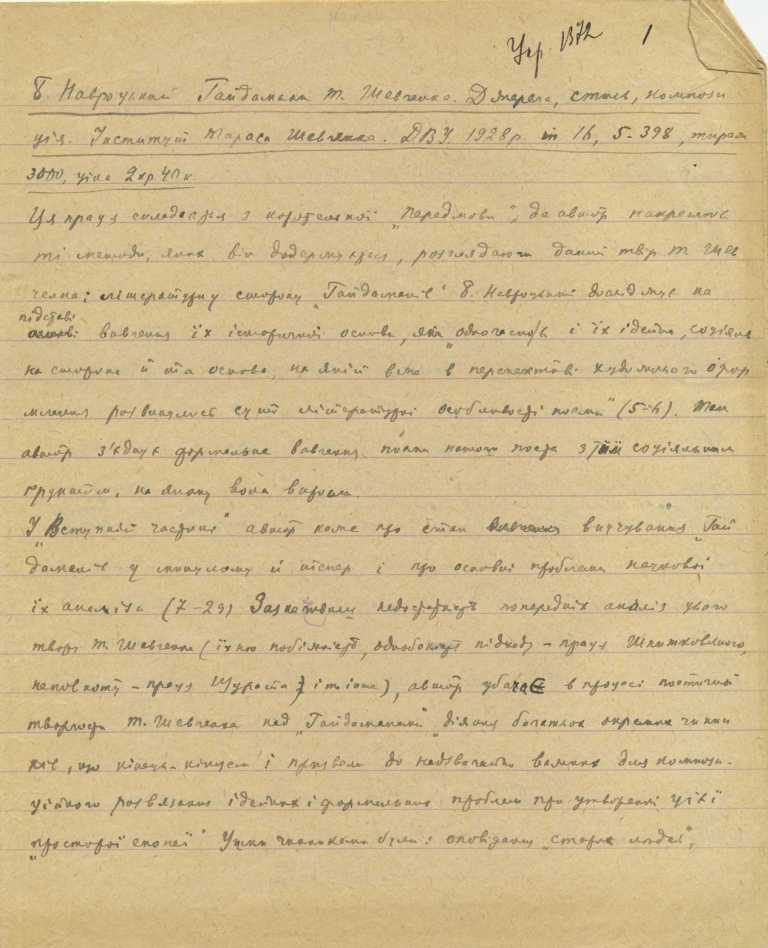 Укр. 1372 1
Б. Навроцький Гайдамаки Т. Шевченка. Джерела, стиль, компози
ція. Інститут Тараса Шевченка. ДВУ. 1928 р. in 16, 5-398, тираж
3000, ціна 2 кр. 40 к.
Ця праця складається з коротенької „Передмови", де автор накреслює
ті методи, яких він додержується, розглядаючи даний твір Т. Шев
ченка; літературну сторону „Гайдамаків" Б. Навроцький досліджує на
підставі
вивчення їх історичної основи, „яка одночасно й їх ідейна, соціяль
на сторона й та основа, на якій вже в перспективі художнього офор
млення розвинулись суто літературні особливості поеми" (5-6). Так
автор з'єднує формальне вивчення поеми нашого поета з тим соціяльним
ґрунтом, на якому вона виросла.
У „Вступній частині" автор каже про стан вивчування „Гай
дамаків" у минулому й тепер і про основні проблеми наукової
їх аналізи (7-29) недостатність попередніх аналіз цього
твору Т. Шевченка (їхню побіжність, однобокість підходу – праця Шпитковського,
неповноту – праця Щурата) і т. інше), автор убачає в процесі поетичної
творчости Т. Шевченка над „Гайдамаками" „діяння багатьох окремих чинни
ків, що кінець-кінцем і призвели до надзвичайно важких для компози-
ційного розв'язання ідейних і формальних проблем при утворенні цієї
„просторої епопеї" Цими чинниками були: оповідання „старих людей",